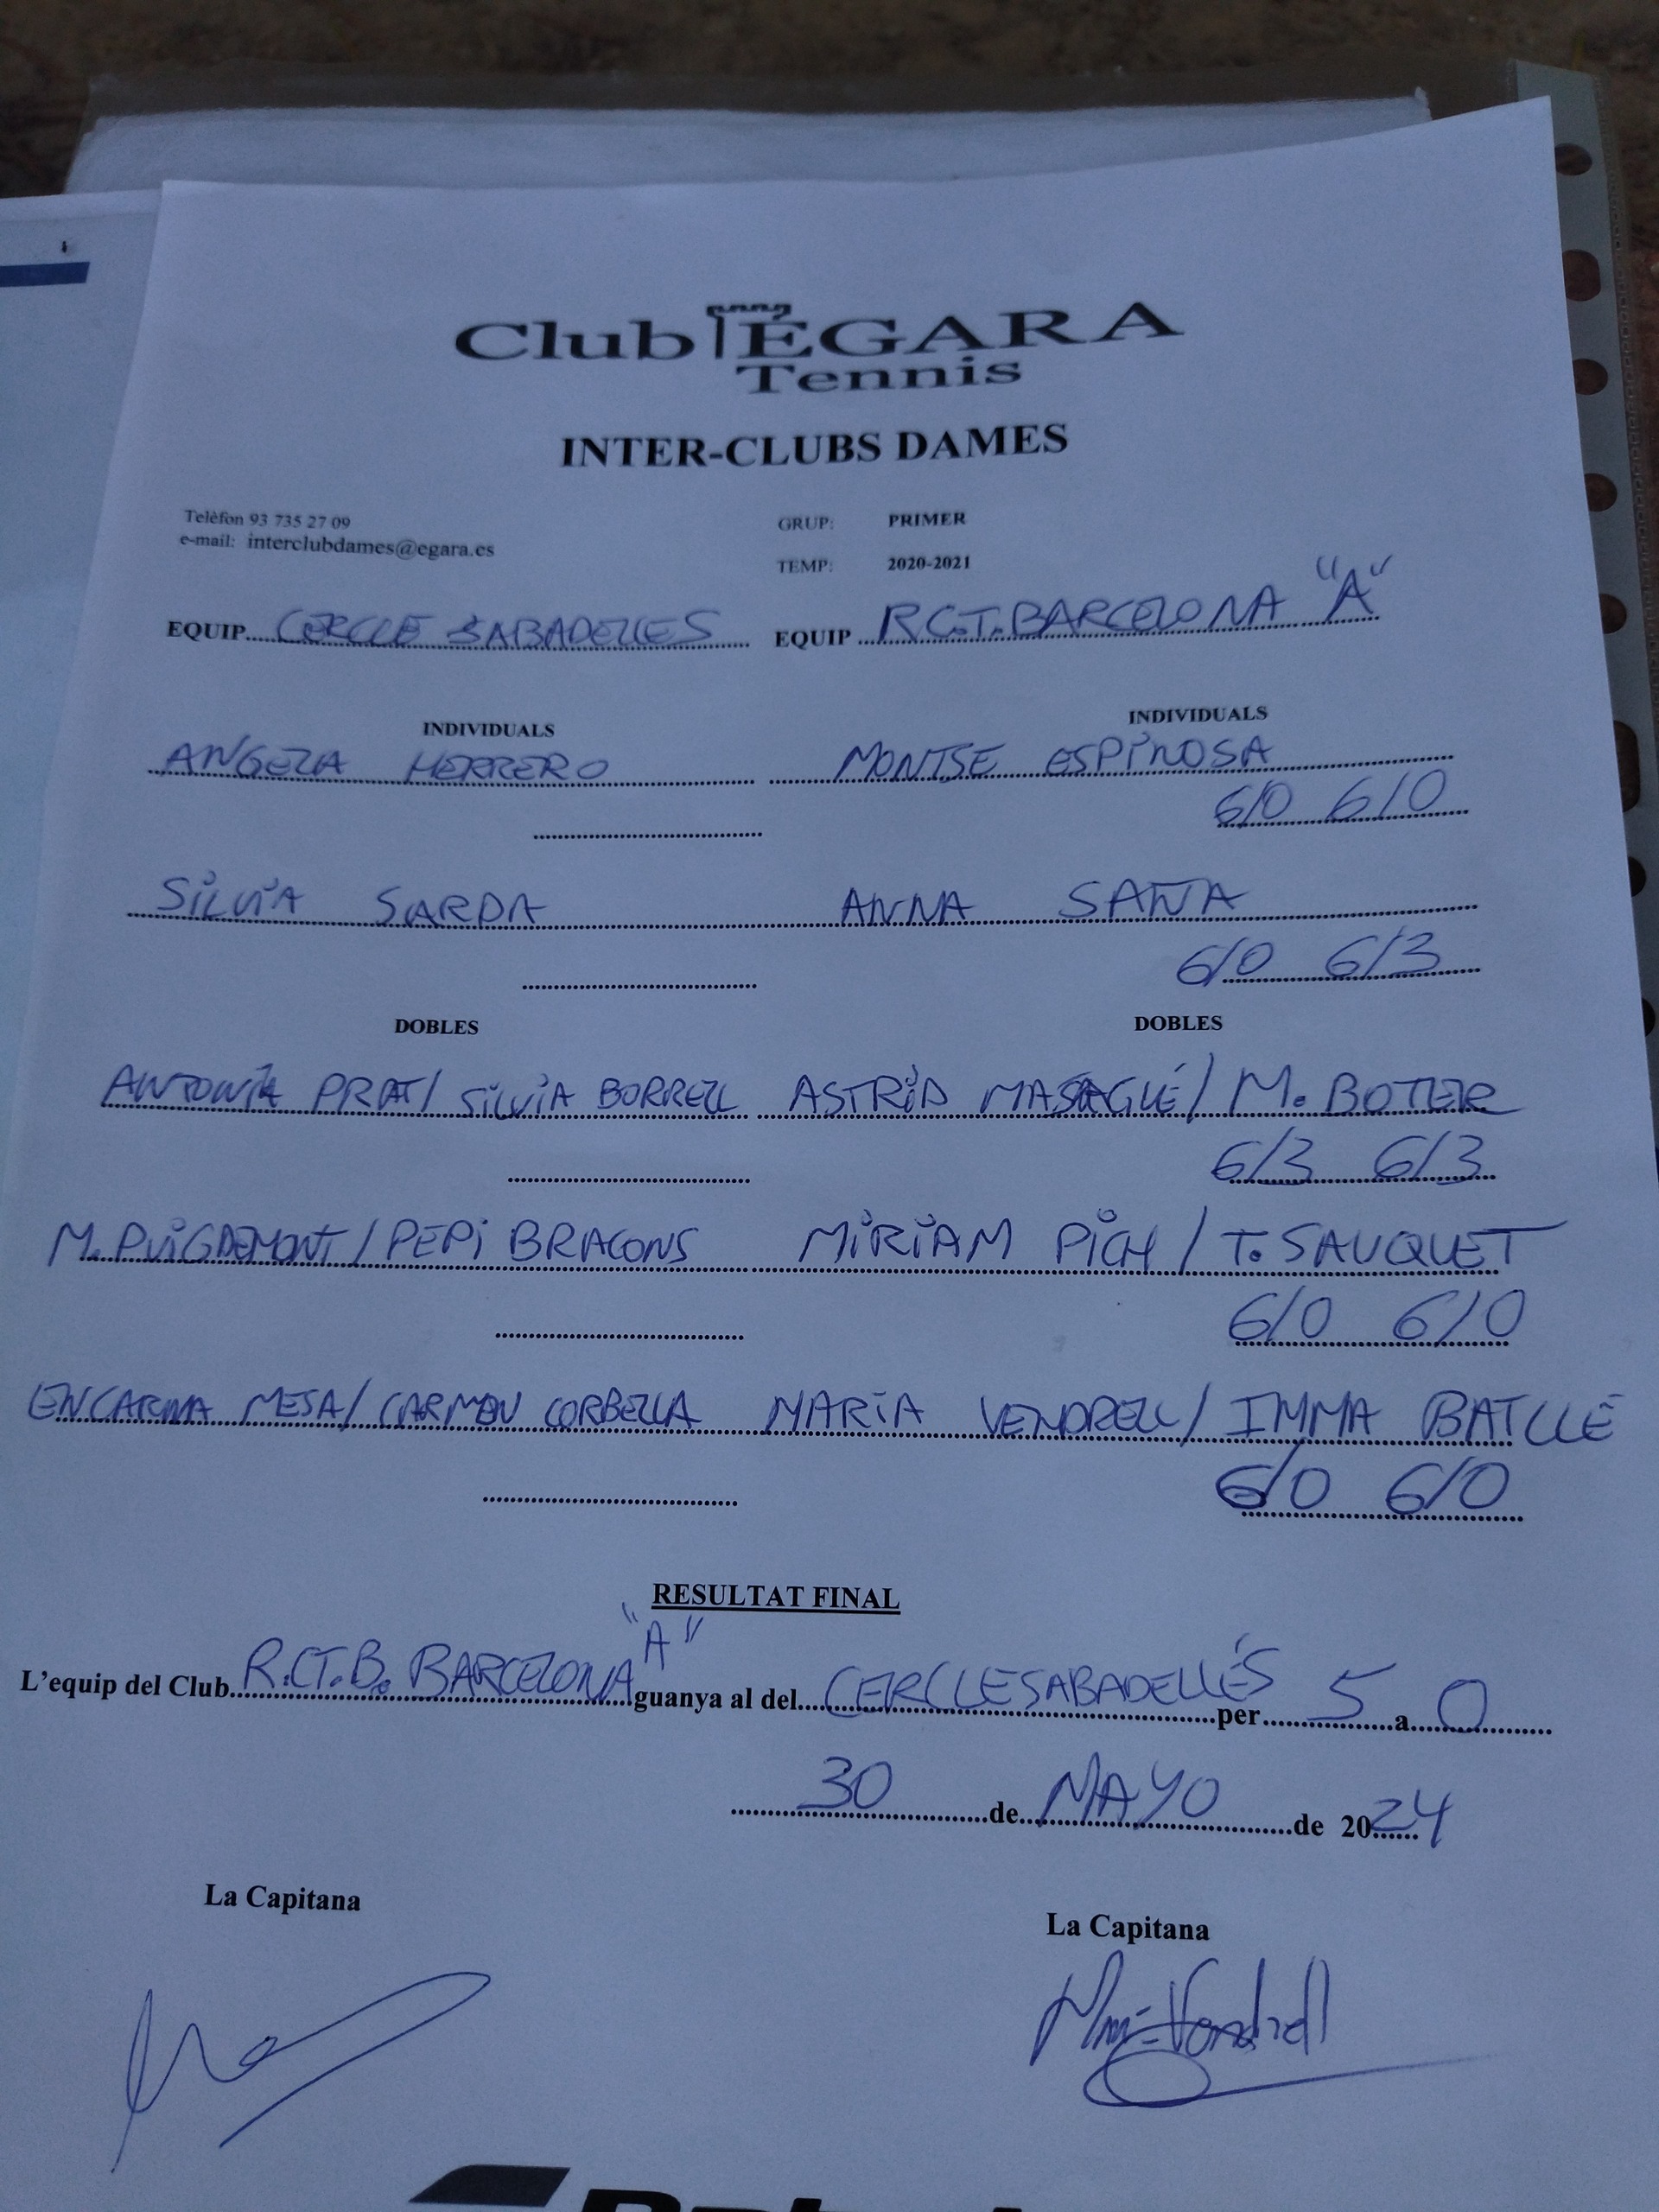 Club ÈGARA
Tennis
INTER-CLUBS DAMES
Telèfon 93 735 27 09
e-mail: interclubdames@egara.es
GRUP: PRIMER
TEMP: 2020-2021
EQUIP CERCLE SABADELLES EQUIP R.C.T. BARCELONA "A"
INDIVIDUALS INDIVIDUALS
ANGELA HERRERO MONTSE ESPINOSA
6/0 6/0
SILVIA SARDA ANNA
6/0 6/3
DOBLES DOBLES
ANTONIA PRAT/ SILVIA BORRELL ASTRID MASAGUÉ/ M. BOTER
6/3 6/3
M. PUIGDEMONT/PEPI BRACONS MIRIAM PICH / T. SAUQUET
6/0 6/0
ENCARNA MESA/ CARMEN CORBELLA MARIA VENDRELL/ IMMA BATLLE
6/0 6/0
RESULTAT FINAL
L'equip del Club R.C.T.B. BARCELONA "A" guanya al del CERCLE SABADELLÉS per 5 a 0
30 de MAYO de 2024
La Capitana La Capitana
Vendrell